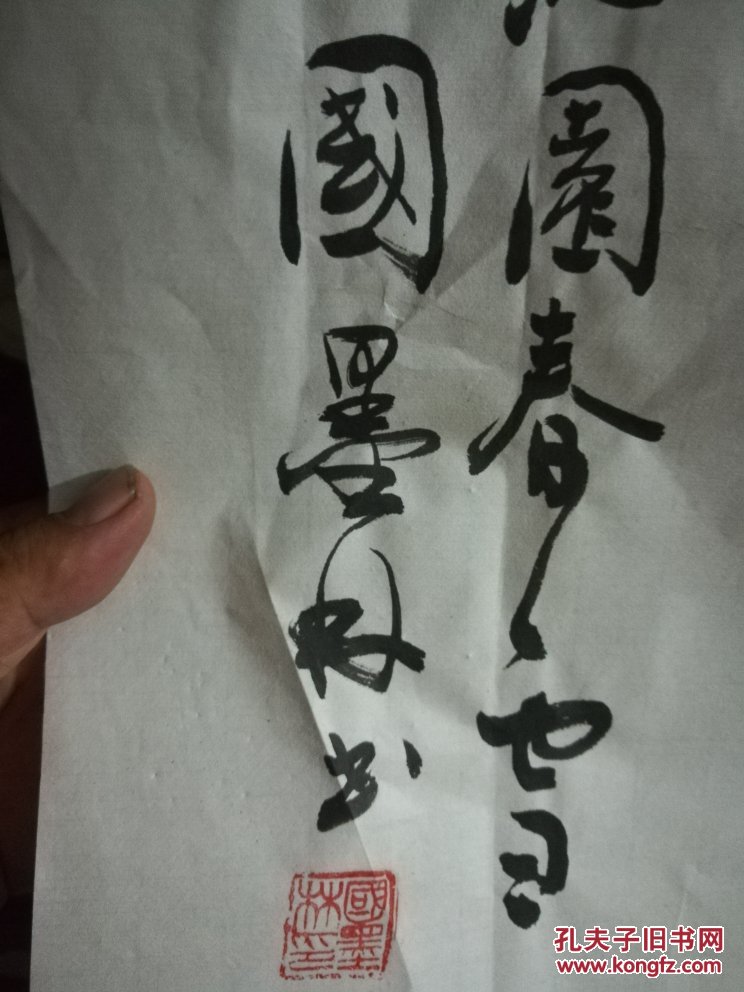 園春雪
國墨林书
國墨林印
孔夫子旧书网
www.kongfz.com